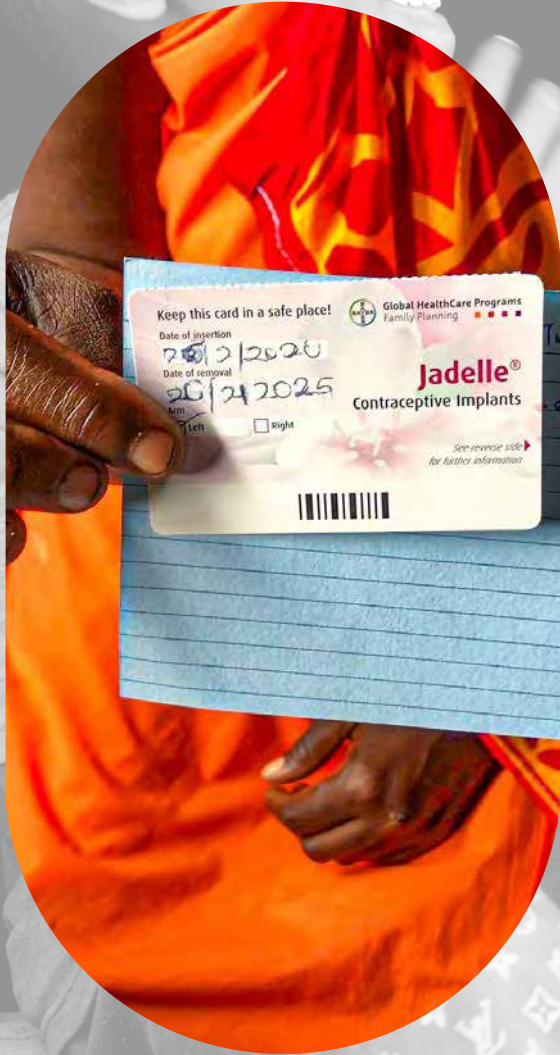 Keep this card in a safe place!
Global HealthCare Programs
Family Planning
Date of insertion
20/2/2020
Date of removal
20/2/2025
Arm
Left
Right
Jadelle®
Contraceptive Implants
See reverse side
for further information
BAYER